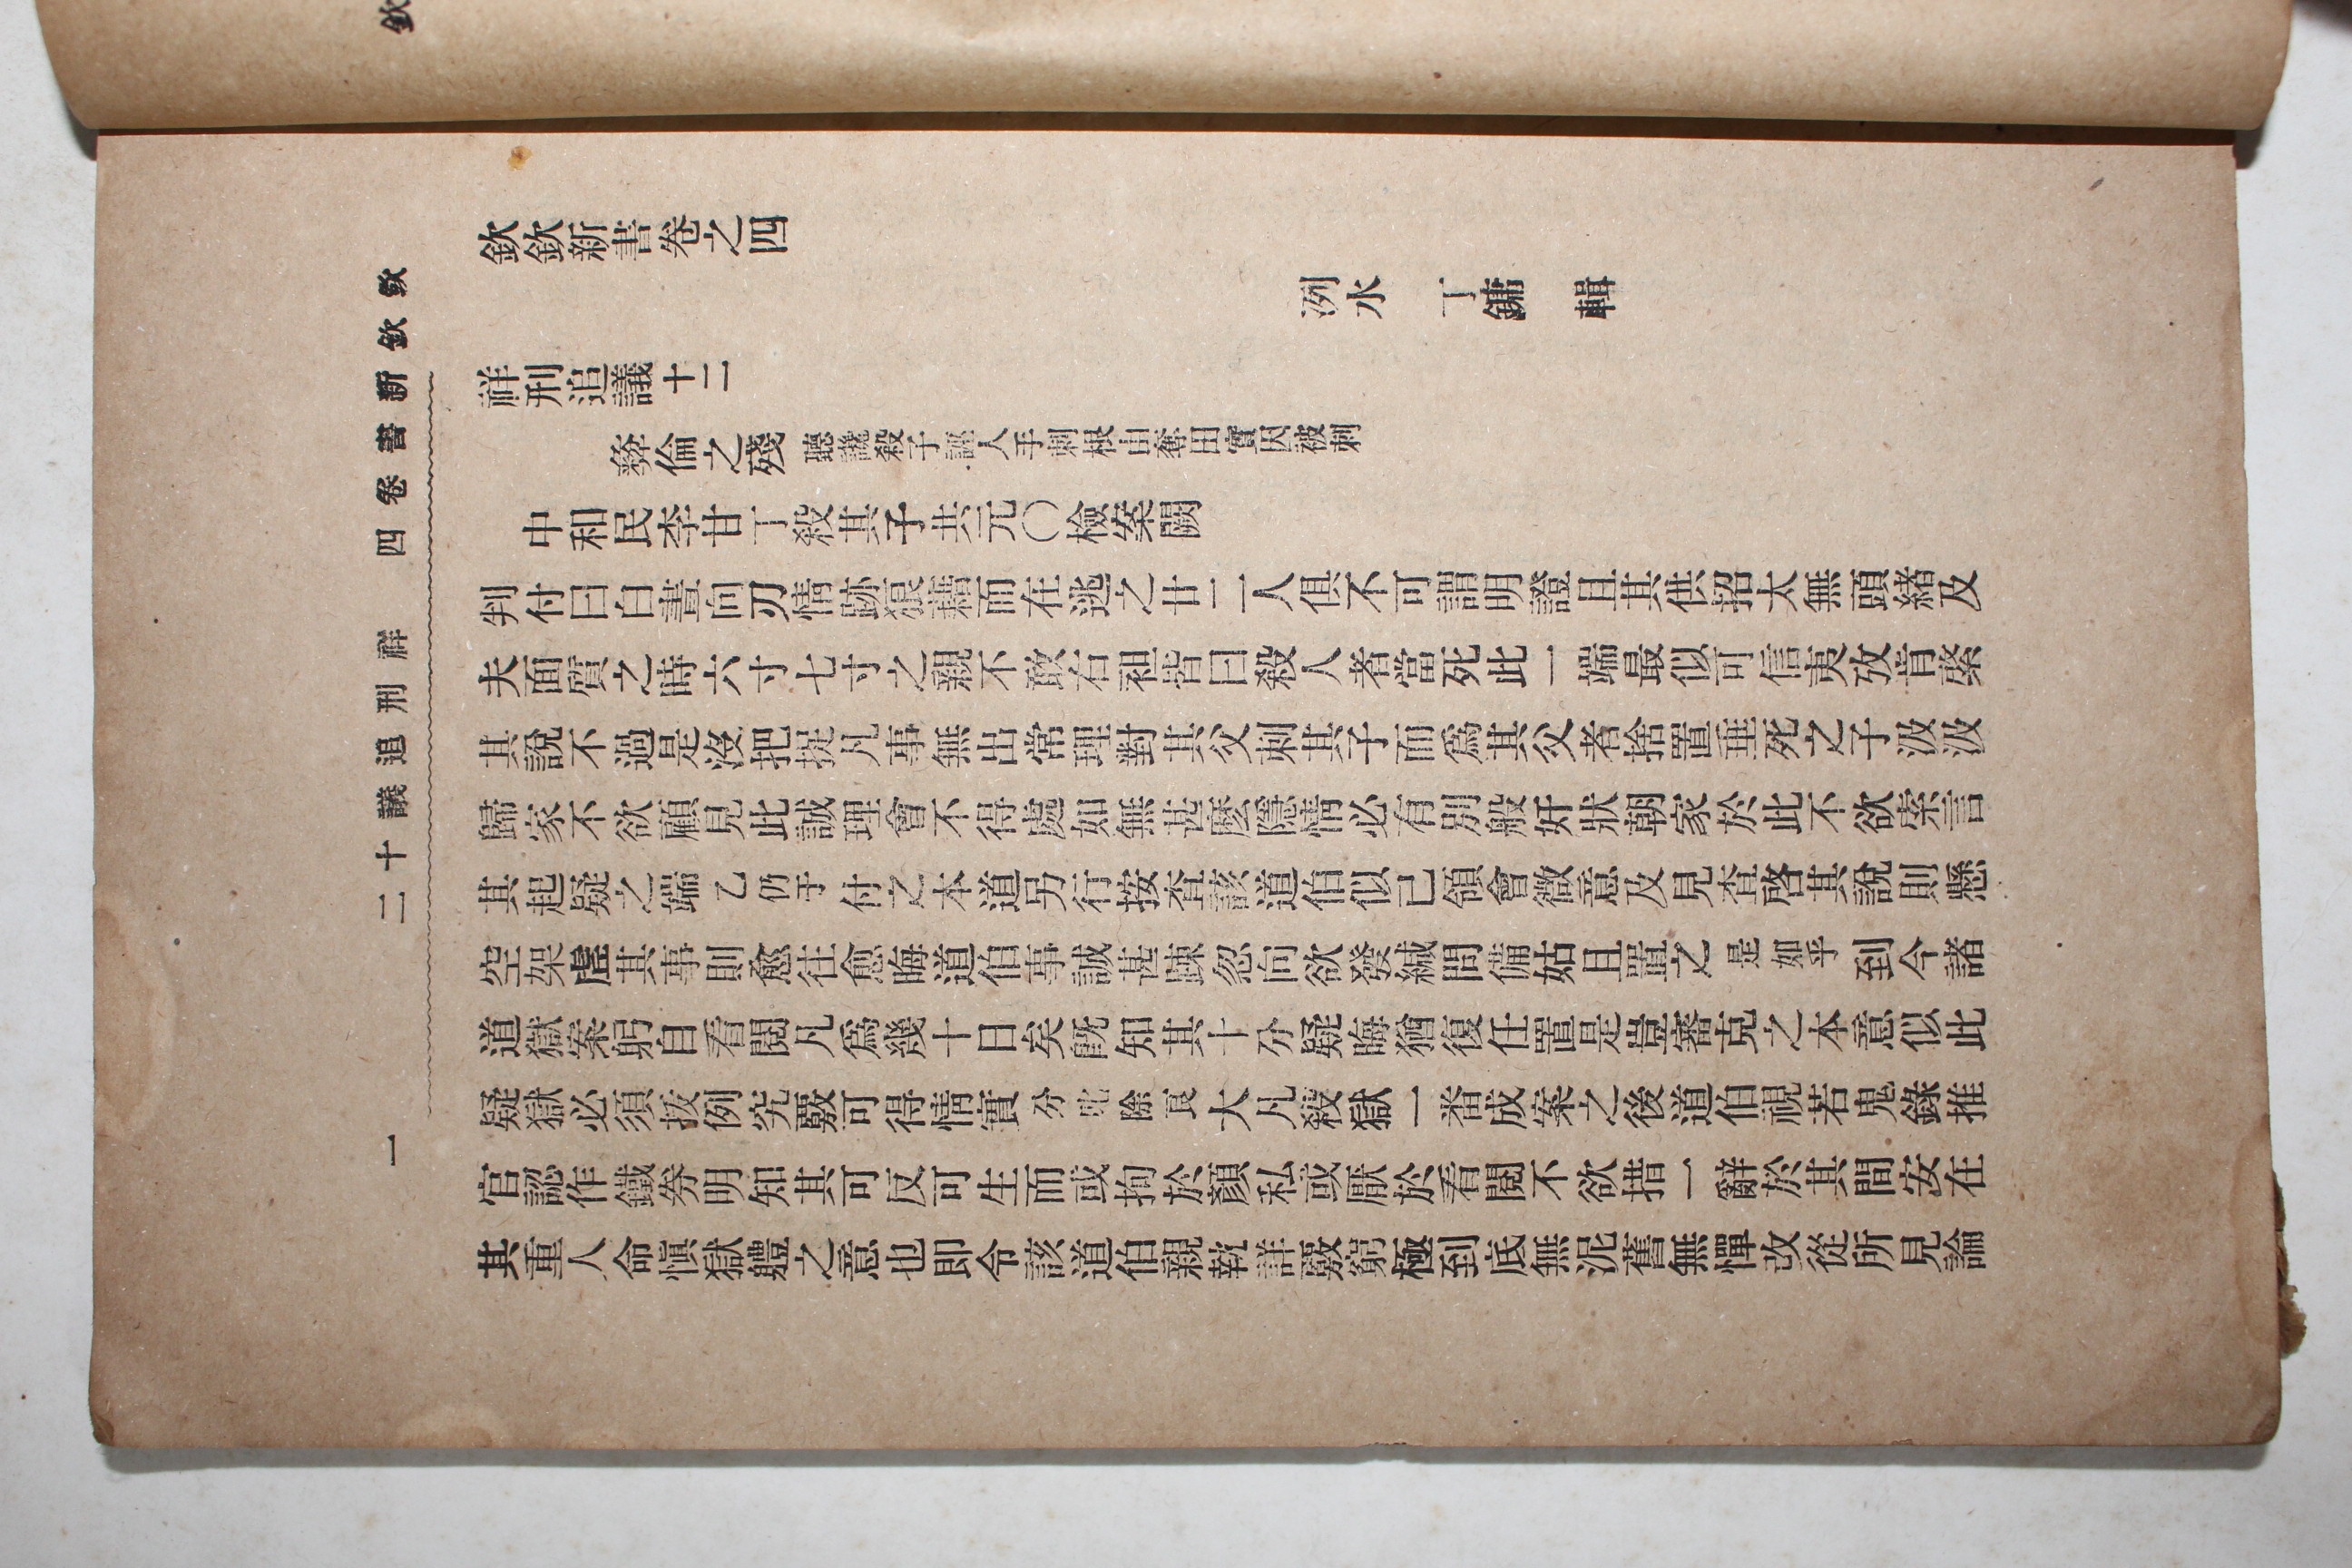 欽
欽欽新書卷之四
洌水 丁鏞 輯
祥刑追議十二
彝倫之殘 聽讒殺子誣人手刺根由奪田實因被刺
中和民李甘丁殺其子共元〇檢案闕
判付曰白晝向刃情跡狼藉而在逃之廿二人俱不可謂明證且其供招太無頭緖及
夫面質之時六寸七寸之親不敢右袒皆曰殺人者當死此一端最似可信夷攷肯綮
其說不過是沒把捉凡事無出常理對其父刺其子而爲其父者捨置垂死之子汲汲
歸家不欲顧見此誠理會不得處如無甚麽隱情必有別般奸狀朝家於此不欲索言
其起疑之端乙仍于付之本道另行按查該道伯似已領會微意及見查啓其說則懸
空架虛其事則愈往愈晦道伯事誠甚踈忽向欲發緘問備姑且置之是如乎到今諸
道獄案躬自看閱凡爲幾十日矣旣知其十分疑晦猶復任置是豈審克之本意似此
疑獄必須拔例究覈可得情實分叱除良大凡殺獄一番成案之後道伯視若鬼錄推
官認作鐵券明知其可反可生而或拘於顏私或厭於看閱不欲措一辭於其間安在
其重人命愼獄體之意也卽令該道伯親執詳覈窮極到底無泥舊無憚改從所見論
欽欽新書卷四 祥刑追議十二 一